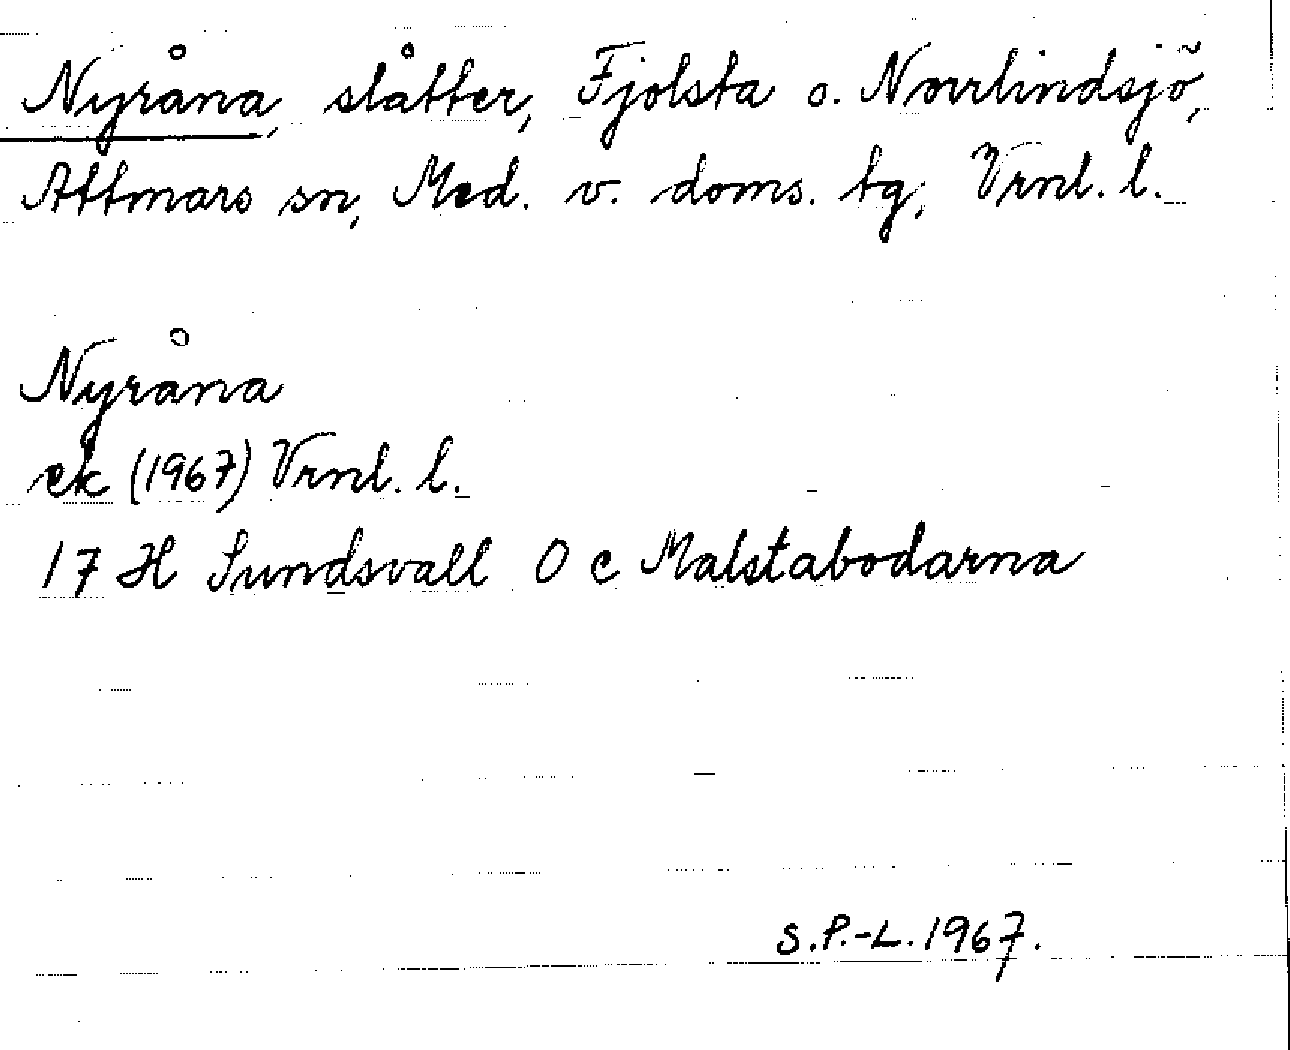 Nyråna, slåtter, Fjolsta o. Norrlindsjö,
Attmars sn, Med. v. doms. tg, Vrnl. l.
Nyråna
ek (1967) Vrnl. l.
17 H Sundsvall 0 c Malstabodarna
S.P.-L. 1967.